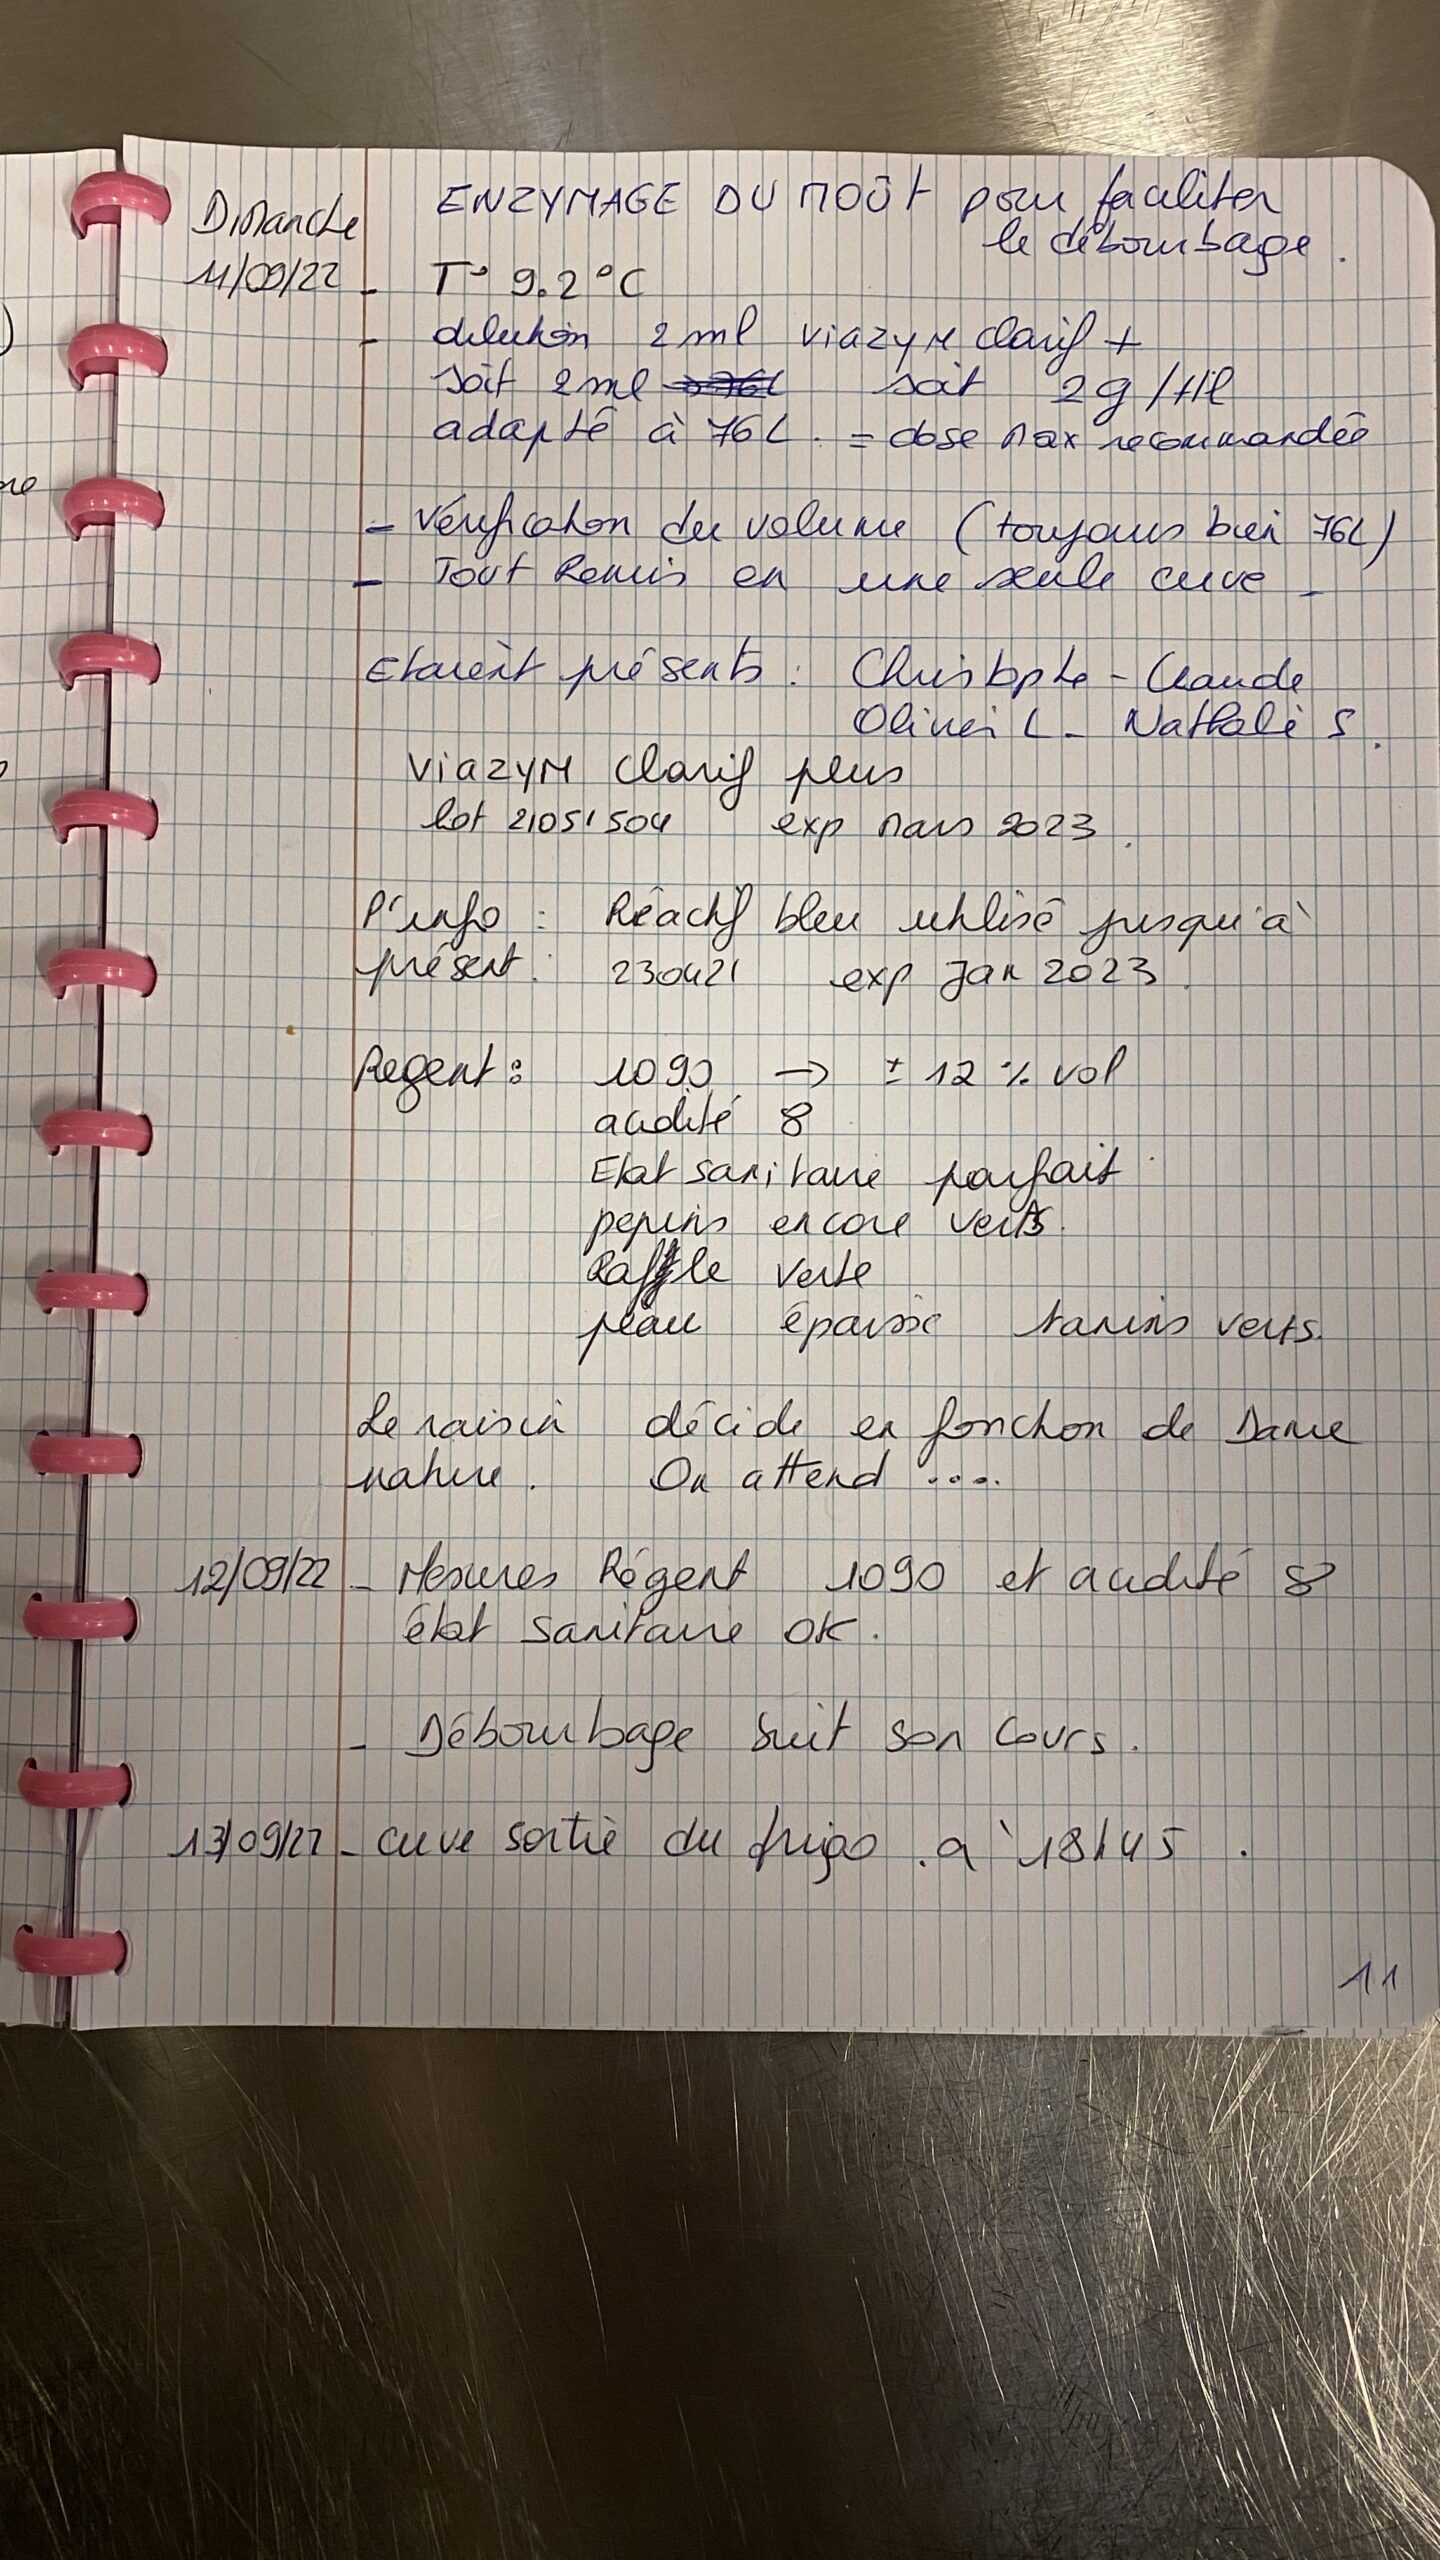 Dimanche ENZYMAGE DU MOÛT pour faciliter
le débourbage.
11/09/22 - T° 9.2°C
- dilution 2ml viazym clarif +
soit 2ml soit 2g/Hl
adapté à 76L. = dose max recommandée
- Vérification du volume (toujours bien 76L)
- Tout Remis en une seule cuve -
Etaient présents : Christophe - Claude
Olivier L - Nathalie S.
Viazym Clarif plus
lot 21051504 exp Mars 2023.
P'info : Réactif bleu utilisé jusqu'à
présent : 230421 exp Jan 2023.
Regent : 1090 → ± 12 % vol
acidité 8
Etat sanitaire parfait.
pepins encore verts.
Raffle verte
peau épaisse tanins verts.
Le raisin décide en fonction de Dame
nature. On attend ....
12/09/22 - Mesures Régent 1090 et acidité 8
état sanitaire OK.
- Débourbage suit son cours.
13/09/22 - cuve sortie du frigo. à 18h45.
11